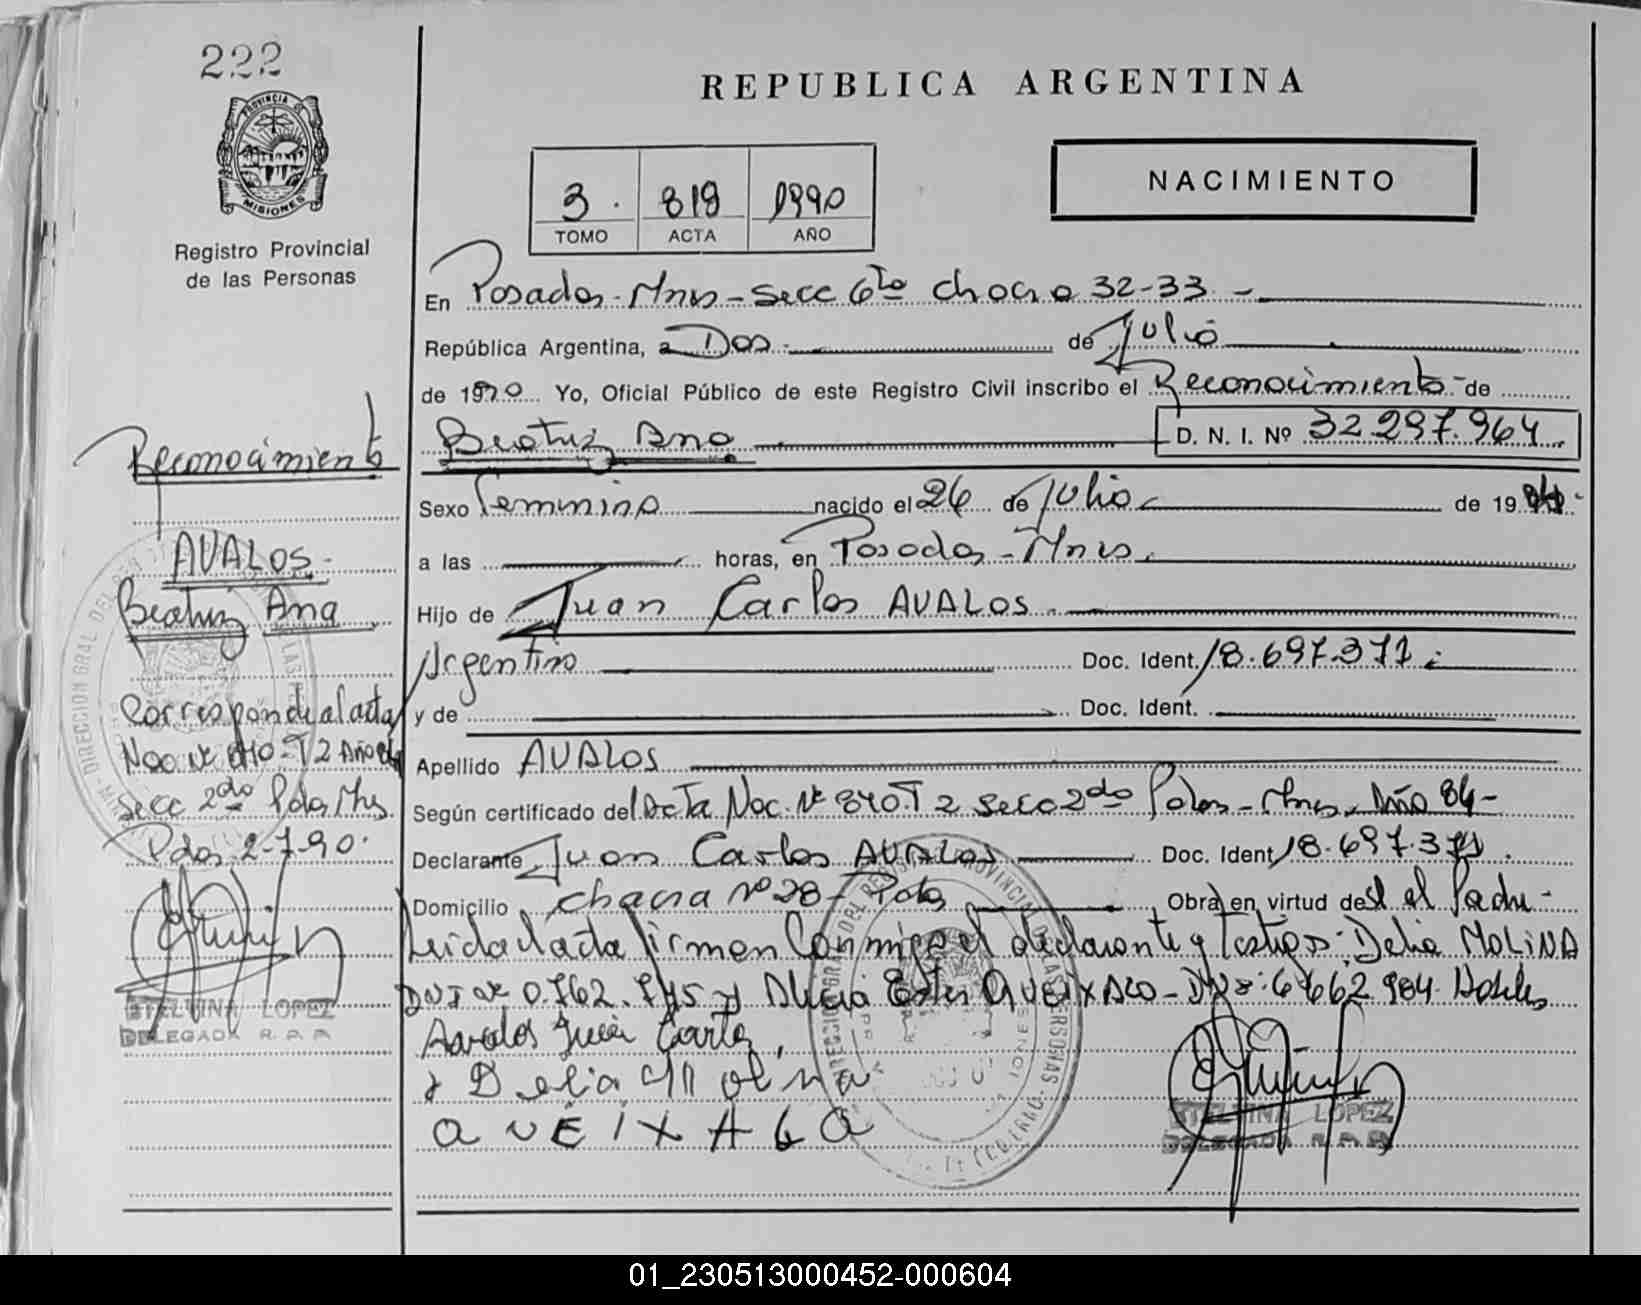 222
REPUBLICA ARGENTINA
PROVINCIA DE
MISIONES
NACIMIENTO
3. 819 1990
TOMO ACTA AÑO
Registro Provincial
de las Personas
En Posadas - Mnes - Secc 6ta chacra 32-33 -
República Argentina, a Dos de Julio
de 1990 Yo, Oficial Público de este Registro Civil inscribo el Reconocimiento de
Beatriz Ana D. N. I. Nº 32.297.964
Sexo Femenino nacido el 26 de Julio de 1984
a las horas, en Posadas - Mnes.
Hijo de Juan Carlos AVALOS
Argentino Doc. Ident. 18.697.371
y de Doc. Ident.
Apellido AVALOS
Según certificado del Acta Nac. Nº 840 T 2 Secc 2do Pdas - Mnes. Año 84 -
Declarante Juan Carlos AVALOS Doc. Ident. 18.697.371
Domicilio chacra nº 28 - Pdas Obra en virtud de Sl el Padre -
Leida el acta firman conmigo el declarante y testigos: Delia MOLINA
DNI Nº y Alicia Ester QUEIXALO - 6.662.984. Hábiles
Avalos Juan Carlos
Delia Molina
Reconocimiento
AVALOS
Beatriz Ana
Corresponde al acta
Nac Nº 840 - T 2 Año 84
Secc 2do Pdas Mnes
Pdas 2-7-90.
ETELVINA LOPEZ
DELEGADA R. P. P.
ETELVINA LOPEZ
DELEGADA R. P. P.
01_230513000452-000604